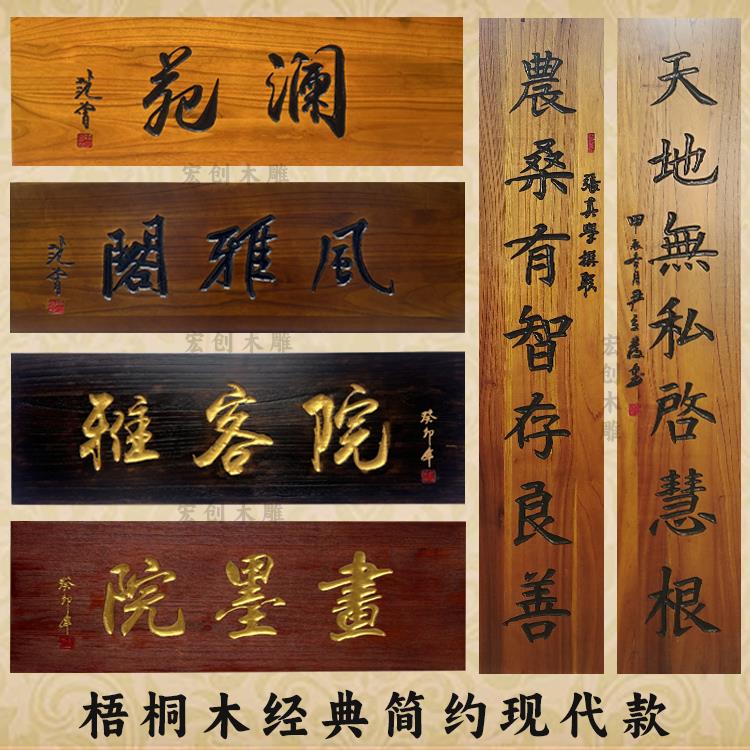 澜苑
范曾
宏创木雕
風雅閣
范曾
宏创木雕
雅客院
癸卯年
宏创木雕
畫墨院
癸卯年
天地無私啓慧根
農桑有智存良善
宏创木雕
梧桐木经典简约现代款